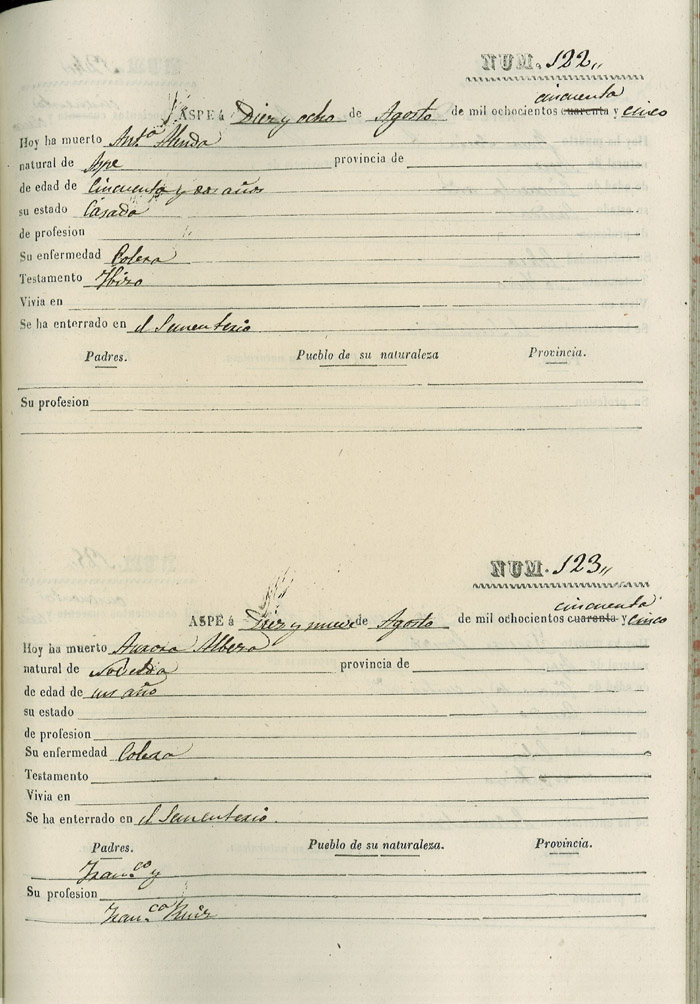 NUM. 122,,
cincuenta
ASPE á Diez y ocho de Agosto de mil ochocientos cuarenta y cinco
Hoy ha muerto Ant.ª
natural de Aspe provincia de
de edad de Cincuenta y dos años
su estado Casada
de profesion
Su enfermedad Colera
Testamento Hizo
Vivia en
Se ha enterrado en el Sementerio
Padres. Pueblo de su naturaleza Provincia.
Su profesion
NUM. 123,,
cincuenta
ASPE á Diez y nueve de Agosto de mil ochocientos cuarenta y cinco
Hoy ha muerto Aurora Albero
natural de Novelda provincia de
de edad de un año
su estado
de profesion
Su enfermedad Colera
Testamento
Vivia en
Se ha enterrado en el Sementerio.
Padres. Pueblo de su naturaleza. Provincia.
Fran.co y
Su profesion
Fran.ca Ruiz